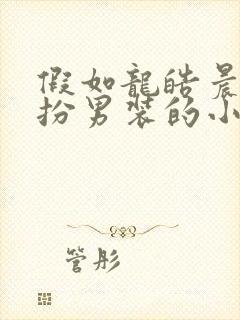 假如龍皓晨
扮男裝的小
管彤